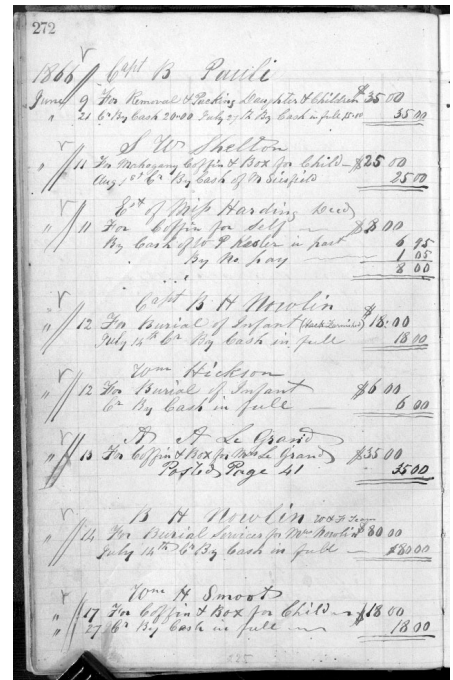 272
1866 Capt B Pauli
June 9 For Removal & Packing Daughter & Children $35 00
" 21 Cr By Cash 20.00 July 27th By Cash in full 15.00 35 00
S W Shelton
" 11 For Mahogany Coffin & Box for Child $25 00
Aug 1st Cr By Cash of 25 00
Est of Miss Harding Decd
" 11 For Coffin for Self $8.00
By Cash of W P Kesler in part 6 95
" By No pay 1 05
8 00
Capt B H Nowlin
" 12 For Burial of Infant (Hack Furnished) $18.00
July 14th Cr By Cash in full 18 00
Wm Hickson
" 12 For Burial of Infant $6 00
Cr By Cash in full 6 00
A A Le Grand
" 13 For Coffin & Box for Mrs Le Grand $35 00
Posted Page 41 35 00
B H Nowlin
" 14 For Burial Services for Mrs Nowlin $80 00
July 14th Cr By Cash in full $80 00
Wm H Smoot
" 17 For Coffin & Box for Child $18 00
" 27 Cr By Cash in full 18 00